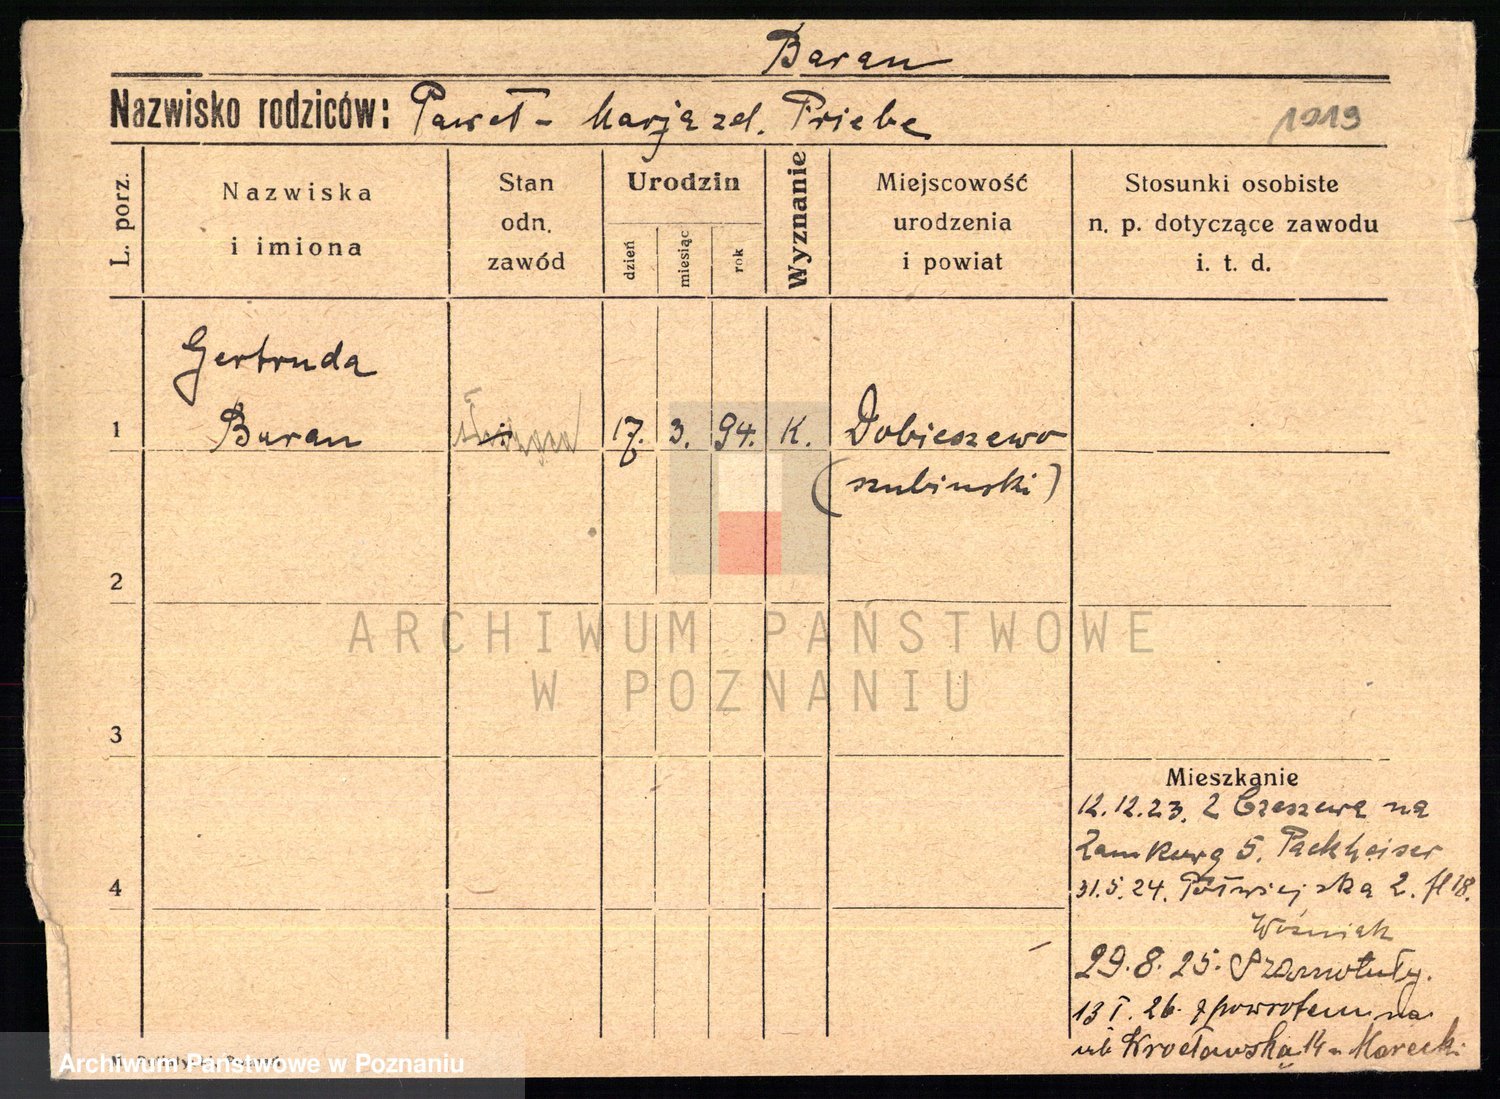 Baran
Nazwisko rodziców: Paweł - Marja zd. Priebe
1919
L. porz.
Nazwiska
i imiona
Stan
odn.
zawód
Urodzin
dzień
miesiąc
rok
Wyznanie
Miejscowość
urodzenia
i powiat
Stosunki osobiste
n. p. dotyczące zawodu
i. t. d.
Gertruda
1 Baran 17. 3. 94. K. Dobieszewo
(szubinski)
2
ARCHIWUM PAŃSTWOWE
W POZNANIU
3
Mieszkanie
12.12.23. z Czeszewa na
5. Packheiser
4
31.5.24. Półwiejska 2. fl 18.
Woźniak
29.8.25. Szamotuły.
13 I. 26. z powrotem na
14 Marecki
Archiwum Państwowe w Poznaniu